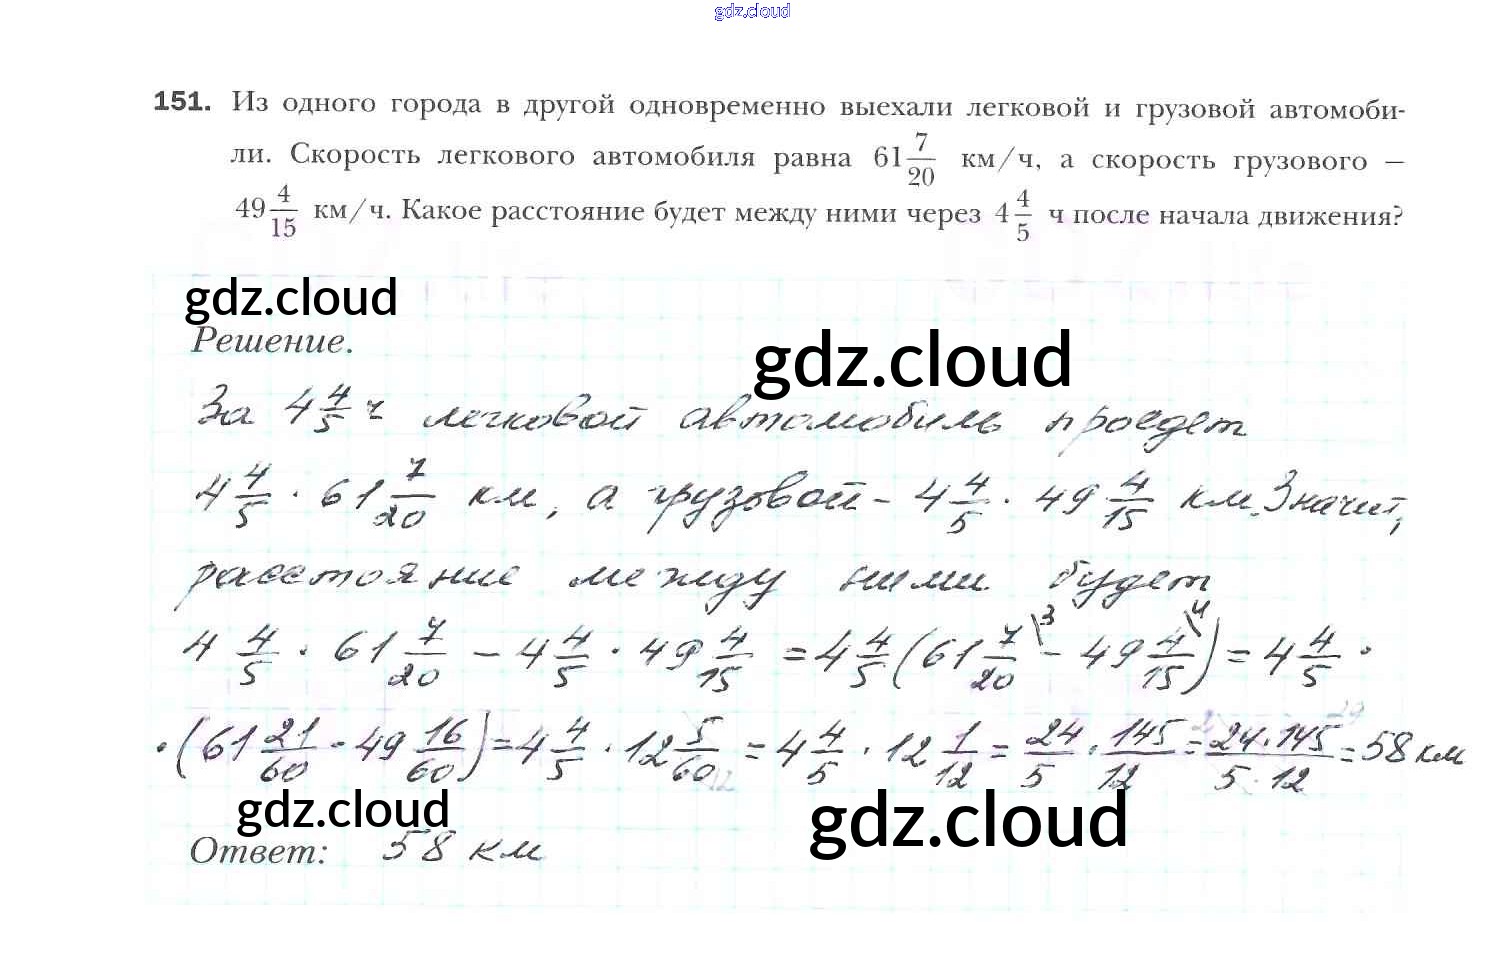 gdz.cloud
151. Из одного города в другой одновременно выехали легковой и грузовой автомоби-
ли. Скорость легкового автомобиля равна 61 7/20 км/ч, а скорость грузового –
49 4/15 км/ч. Какое расстояние будет между ними через 4 4/5 ч после начала движения?
gdz.cloud
Решение.
gdz.cloud
За 4 4/5 ч легковой автомобиль проедет
4 4/5 · 61 7/20 км, а грузовой – 4 4/5 · 49 4/15 км. Значит,
расстояние между ними будет
4 4/5 · 61 7/20 – 4 4/5 · 49 4/15 = 4 4/5 (61 7/20 \3 – 49 4/15 \4) = 4 4/5 ·
· (61 21/60 - 49 16/60) = 4 4/5 · 12 5/60 = 4 4/5 · 12 1/12 = 24/5 · 145/12 = 24·145/5·12 = 58 км
gdz.cloud
gdz.cloud
Ответ: 58 км